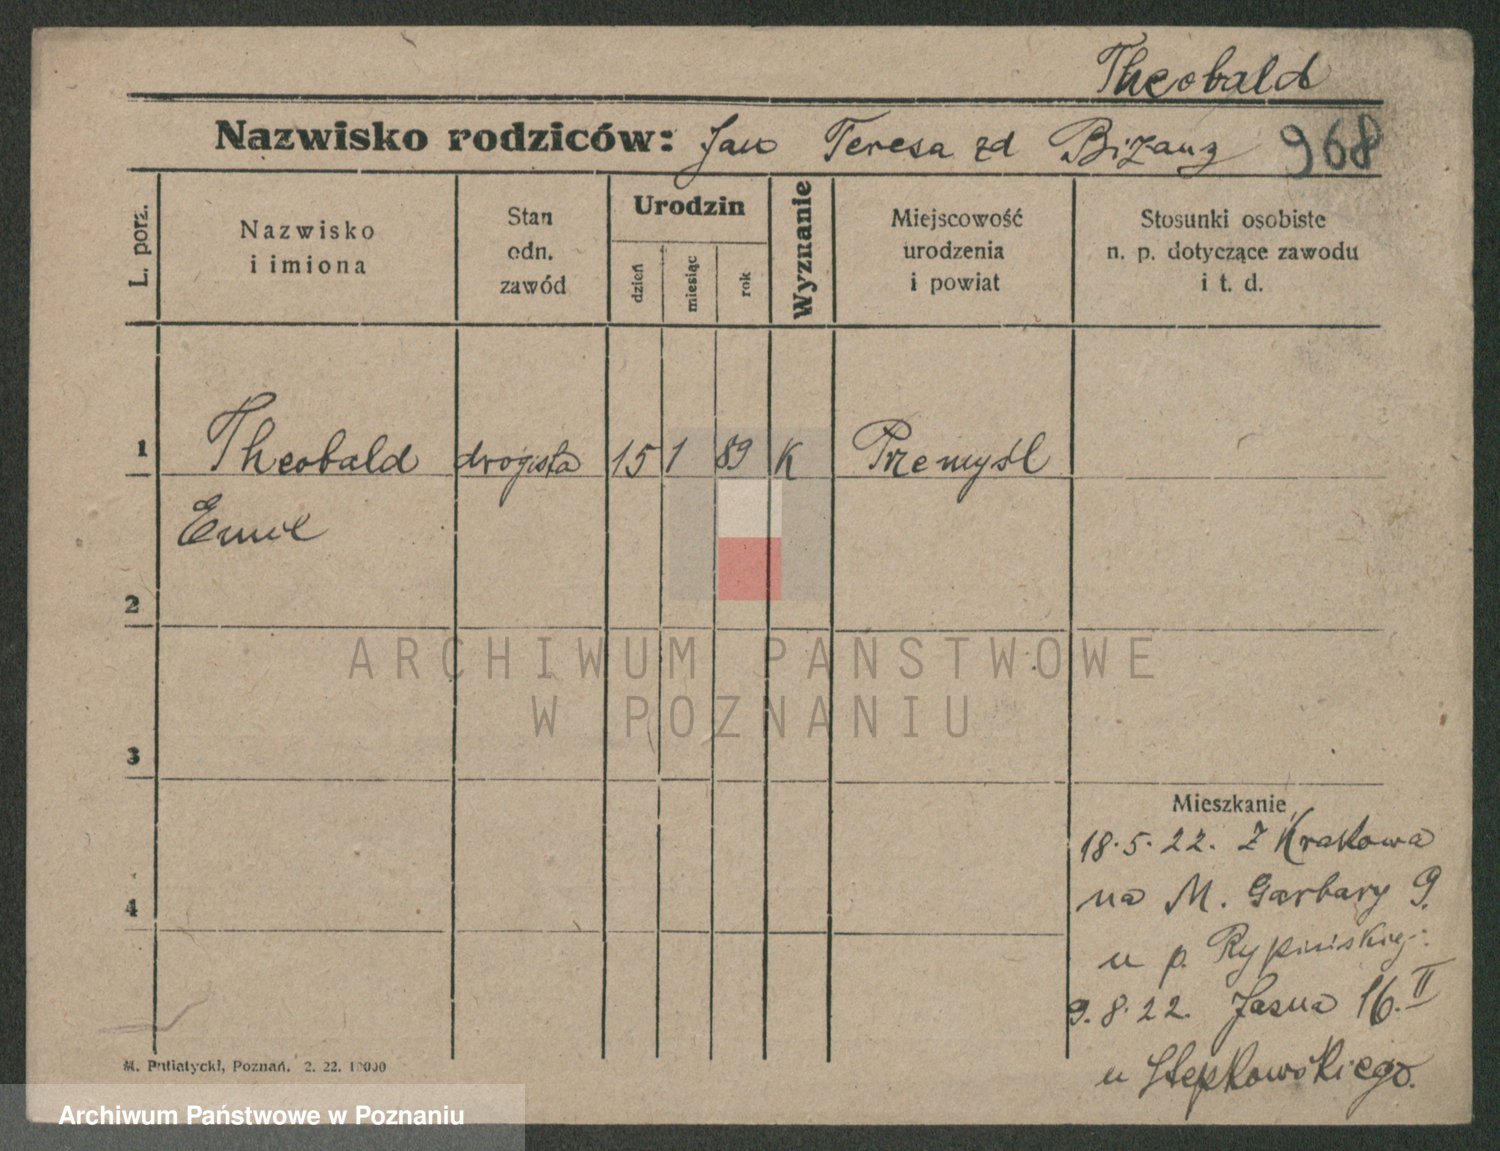 Theobald
Nazwisko rodziców: Jan Teresa zd Bizanz 968
L. porz.
Nazwisko
i imiona
Stan
odn.
zawód
Urodzin
dzień
miesiąc
rok
Wyznanie
Miejscowość
urodzenia
i powiat
Stosunki osobiste
n. p. dotyczące zawodu
i t. d.
1 Theobald drogista 15 1 89 K Przemyśl
Emil
2
ARCHIWUM PAŃSTWOWE
W POZNANIU
3
Mieszkanie
18.5.22. Z Krakowa
4
na M. Garbary 9.
u p.
9.8.22. Jasna 16.II
u Stepkowskiego.
M. Putiatycki, Poznań. 2. 22. 10000
Archiwum Państwowe w Poznaniu